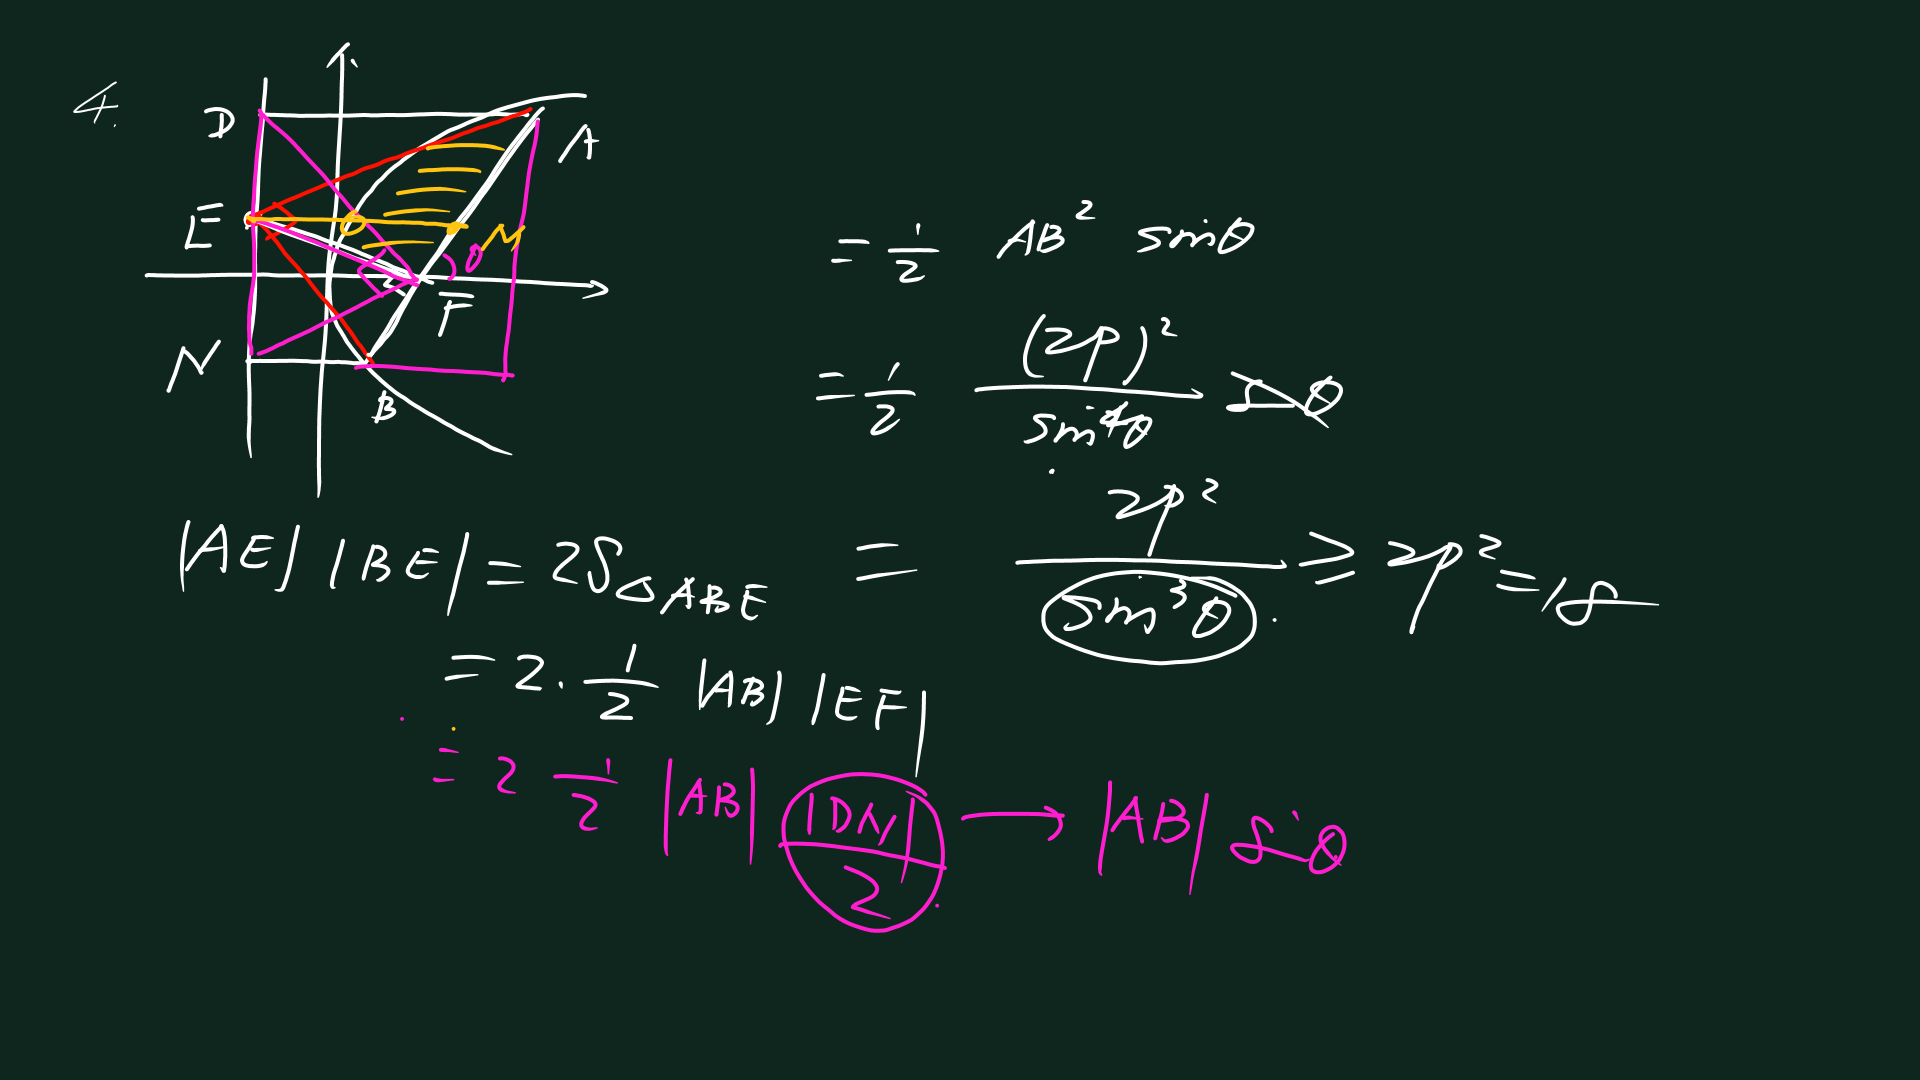 4.
D
A
E
M
θ
F
N
B
|AE| |BE| = 2S△ABE
= 2 · 1/2 |AB| |EF|
= 2 1/2 |AB| |DN|/2 → |AB| sinθ
= 1/2 AB² sinθ
= 1/2 (2p)²/sin⁴θ sinθ
= 2p²/sin³θ ≥ 2p² = 18